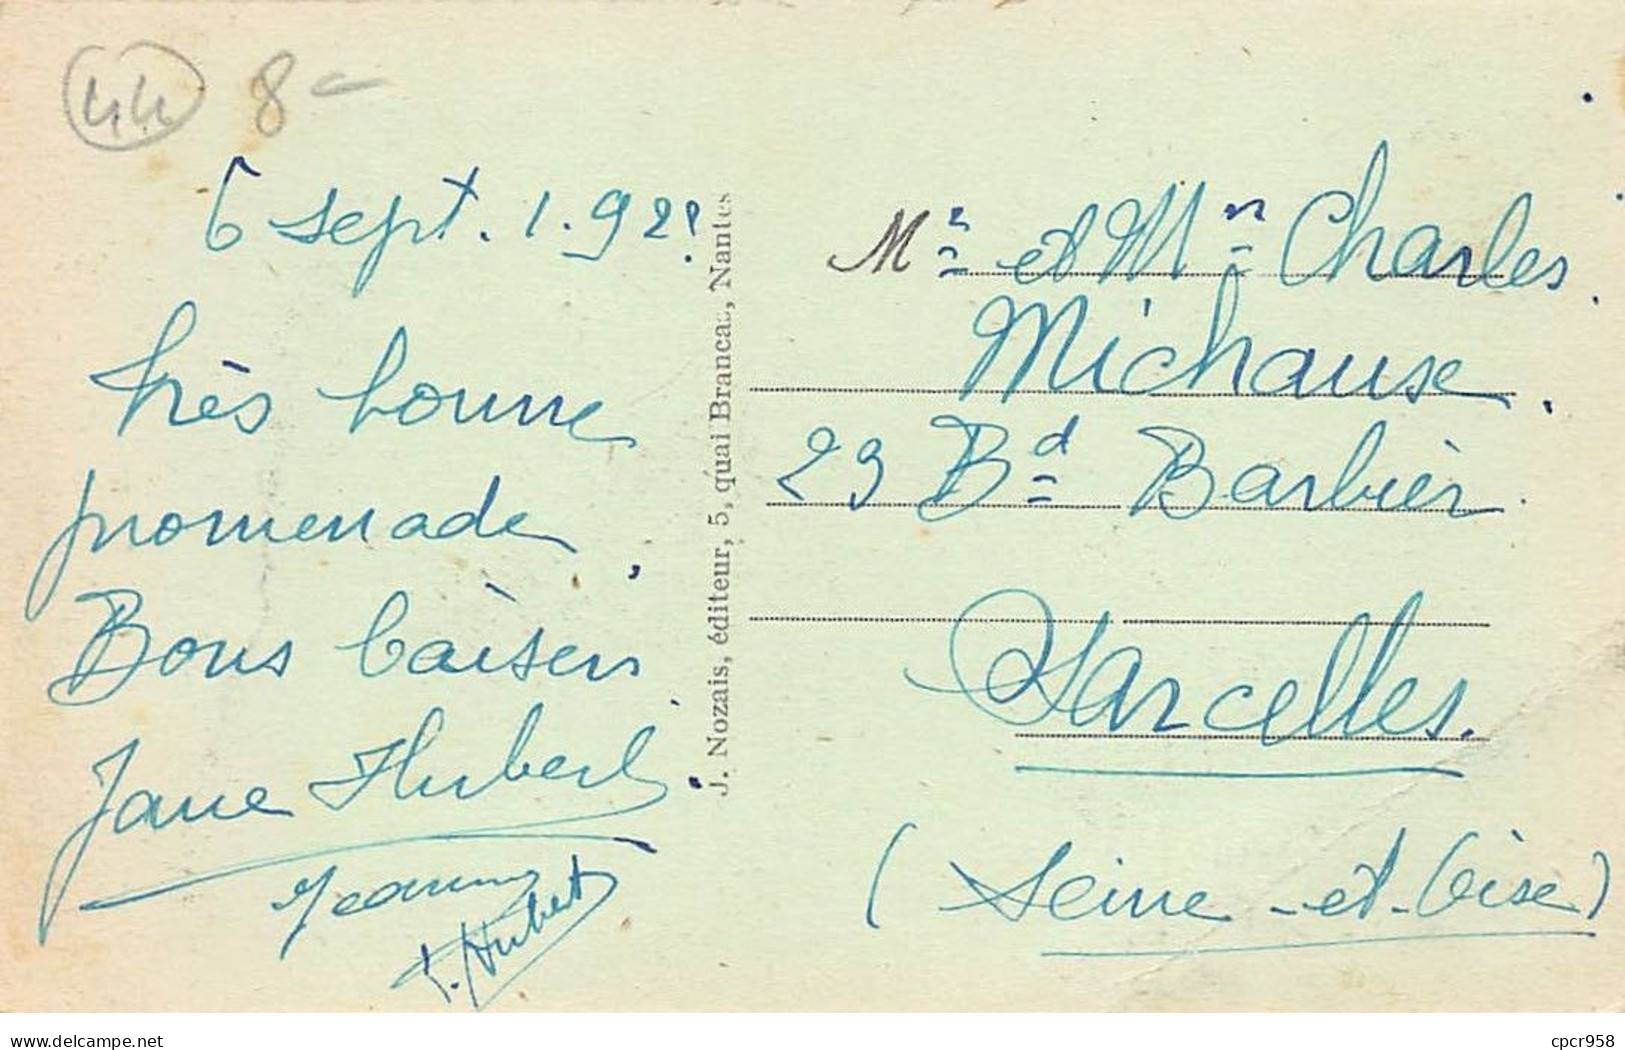 44 8-
6 sept. 1.928.
Très bonne
promenade,
Bons baisers
Jane Hubert.
Jeanne
J. Nozais, éditeur, 5, quai Brancas, Nantes
Mr et Mm Charles
Michause.
23 Bd Barbier
Sarcelles.
(Seine-et-Oise)
www.delcampe.net
cpcr958